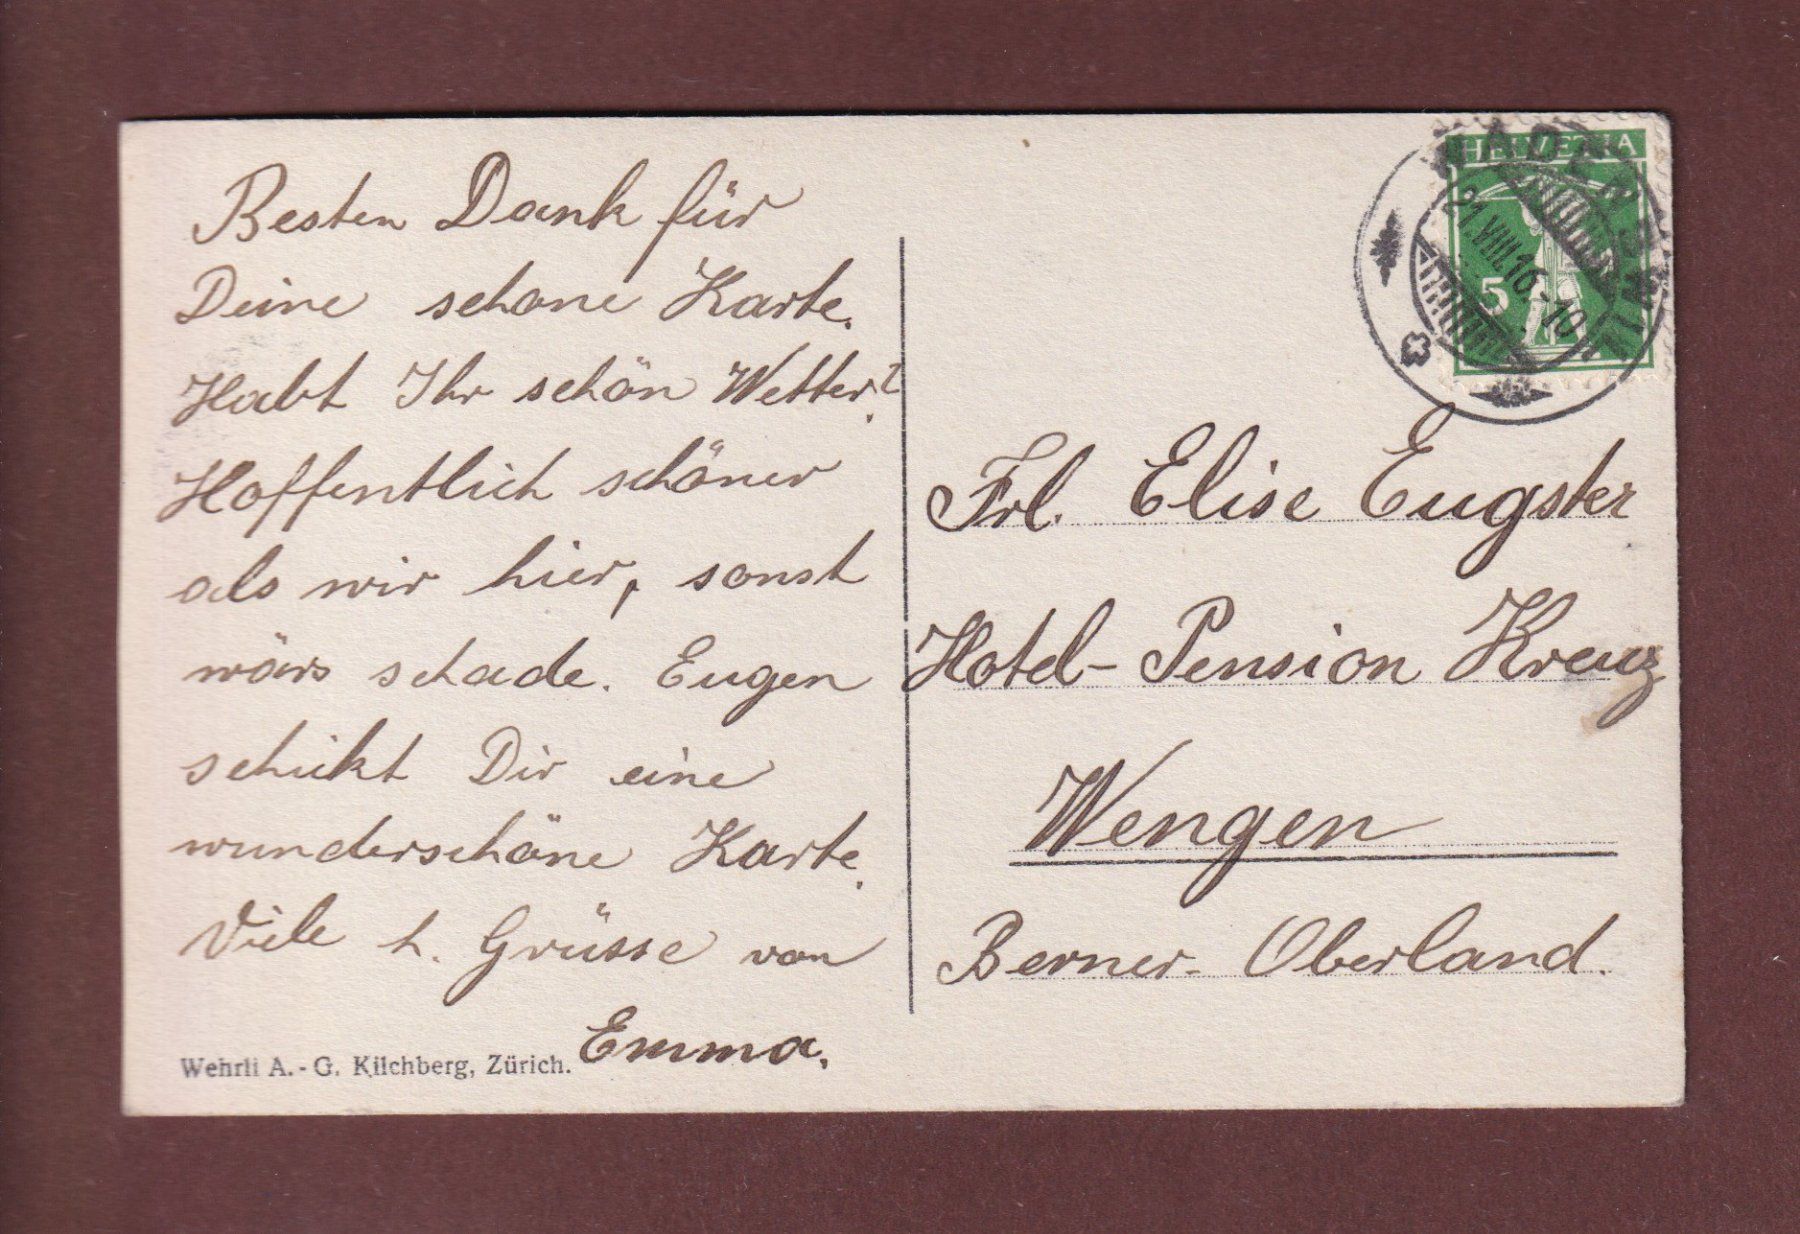 Besten Dank für
Deine schöne Karte.
Habt Ihr schön Wetter?
Hoffentlich schöner
als wir hier, sonst
wärs schade. Eugen
schikt Dir eine
wunderschöne Karte.
Viele h. Grüsse von
Emma.
Wehrli A.-G. Kilchberg, Zürich.
HELVETIA
5
21.VIII.16.-10
Frl. Elise Eugster
Hotel-Pension Kreuz
Wengen
Berner-Oberland.